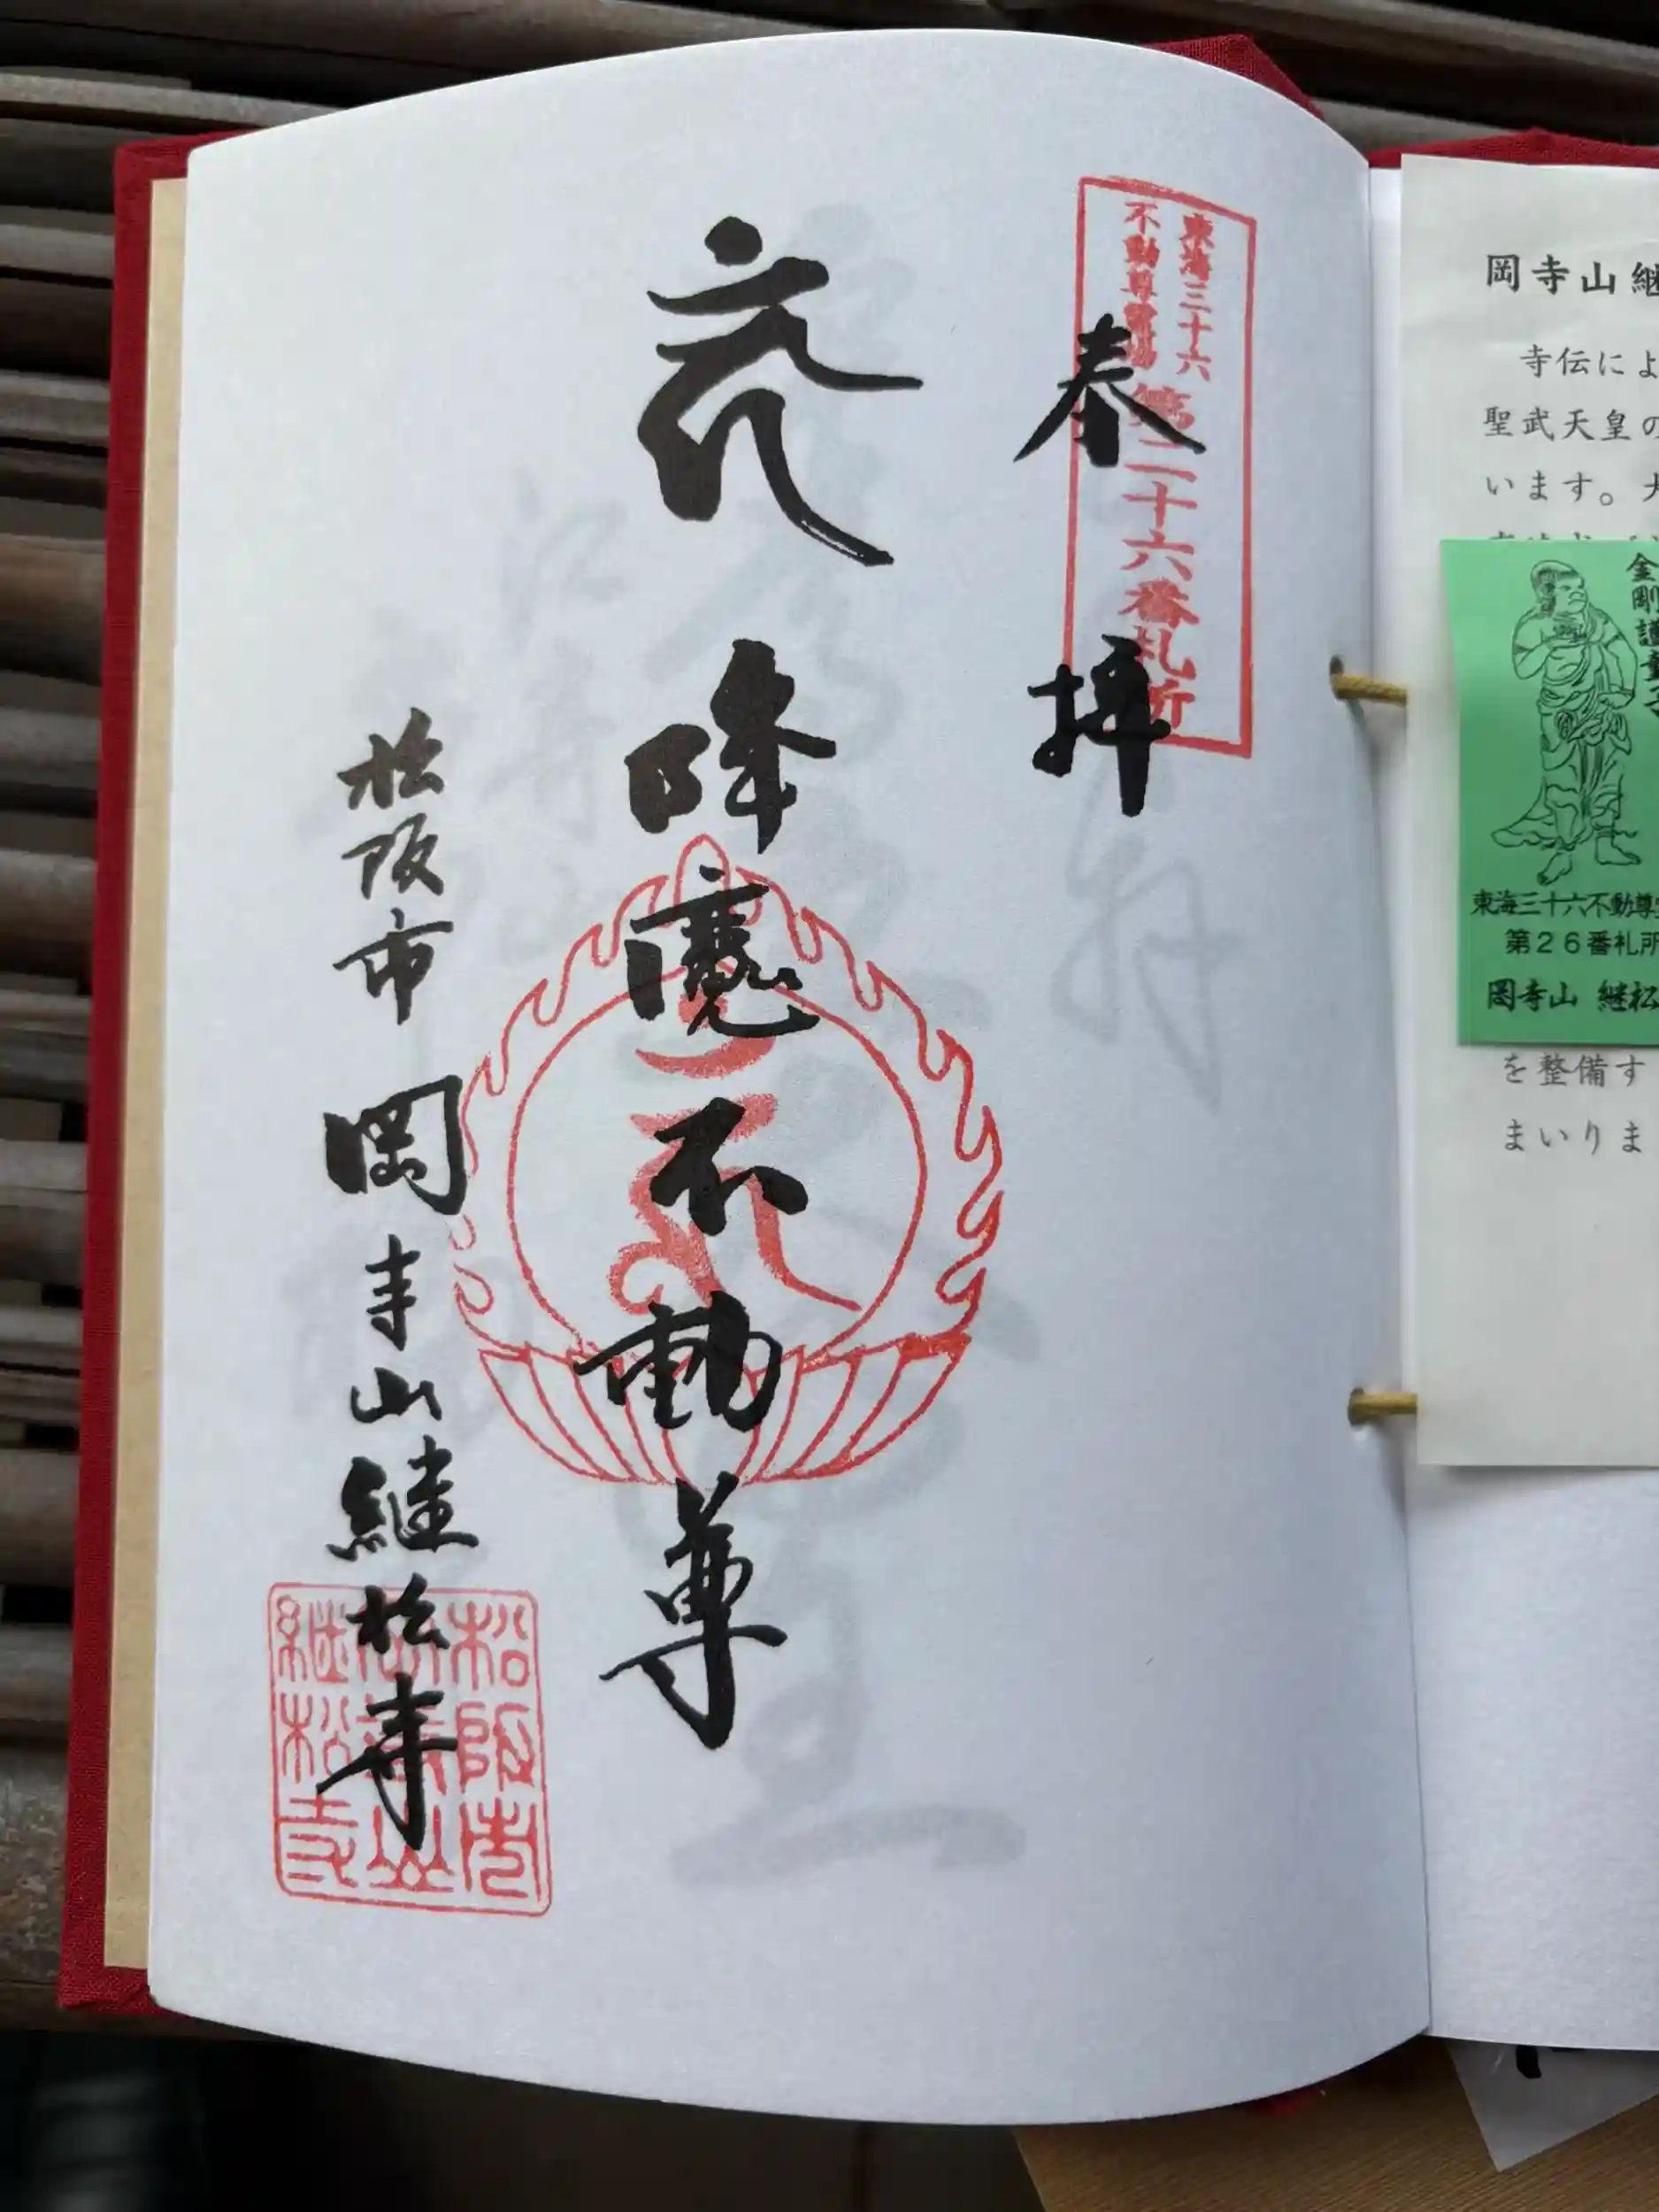 岡寺山 継
寺伝によ
聖武天皇の
います。
金剛護童子
東海三十六不動尊
第26番札所
岡寺山 継松
を整備す
まいりま
東海三十六
不動尊霊場
第二十六番札所
奉拝
降魔不動尊
松阪市 岡寺山 継松寺
松阪市
岡寺山
継松寺